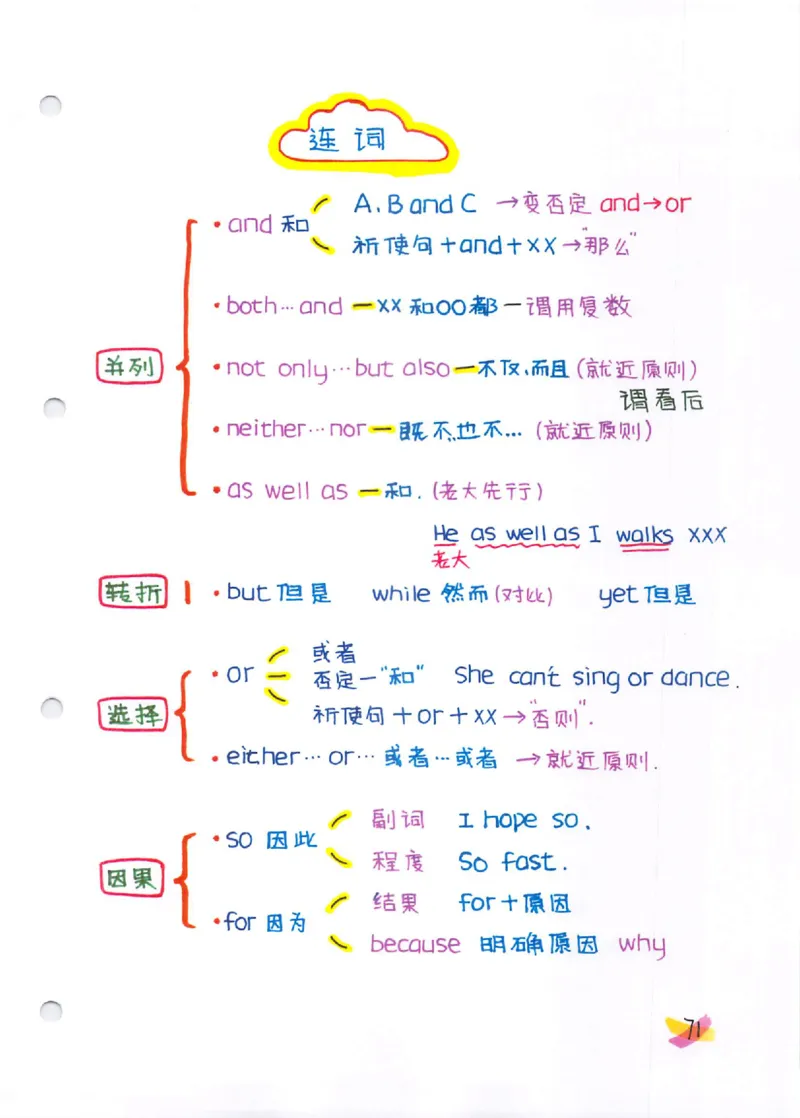 连词
· and 和 A、B and C → 变否定 and→or
祈使句+and+xx→"那么"
并列
· both…and — xx 和OO都 — 谓用复数
· not only…but also — 不仅,而且 (就近原则)
谓看后
· neither…nor — 既不,也不… (就近原则)
· as well as — 和. (老大先行)
He as well as I walks xxx
老大
转折 · but 但是 while 然而 (对比) yet 但是
· or 或者
否定—"和" She can't sing or dance.
选择 祈使句+or+xx→"否则".
· either…or… 或者…或者 → 就近原则.
· so 因此 副词 I hope so.
程度 So fast.
因果
· for 因为 结果 for+原因
because 明确原因 why
71